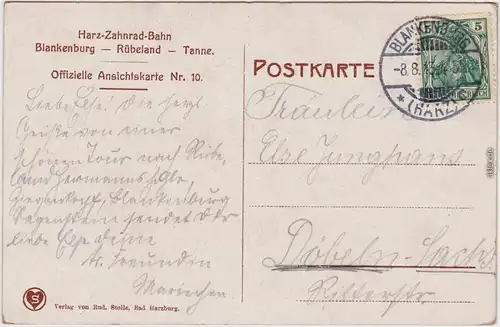 Harz-Zahnrad-Bahn
Blankenburg — Rübeland — Tanne.
Offizielle Ansichtskarte Nr. 10.
POSTKARTE
BLANKENBURG
5
-8.8.
* (HARZ)
Liebe Else! Die herzl.
Grüße von einer
schönen Tour nach Rübe-
land Hermannshöhle,
Ziegenkopf, Blankenburg
sendet Dir
liebe Else Deine
Freundin
Mariechen
Fräulein
Else Junghans
Döbeln-Sachs.
Ritterstr.
S
Verlag von Rud. Stolle, Bad Harzburg.